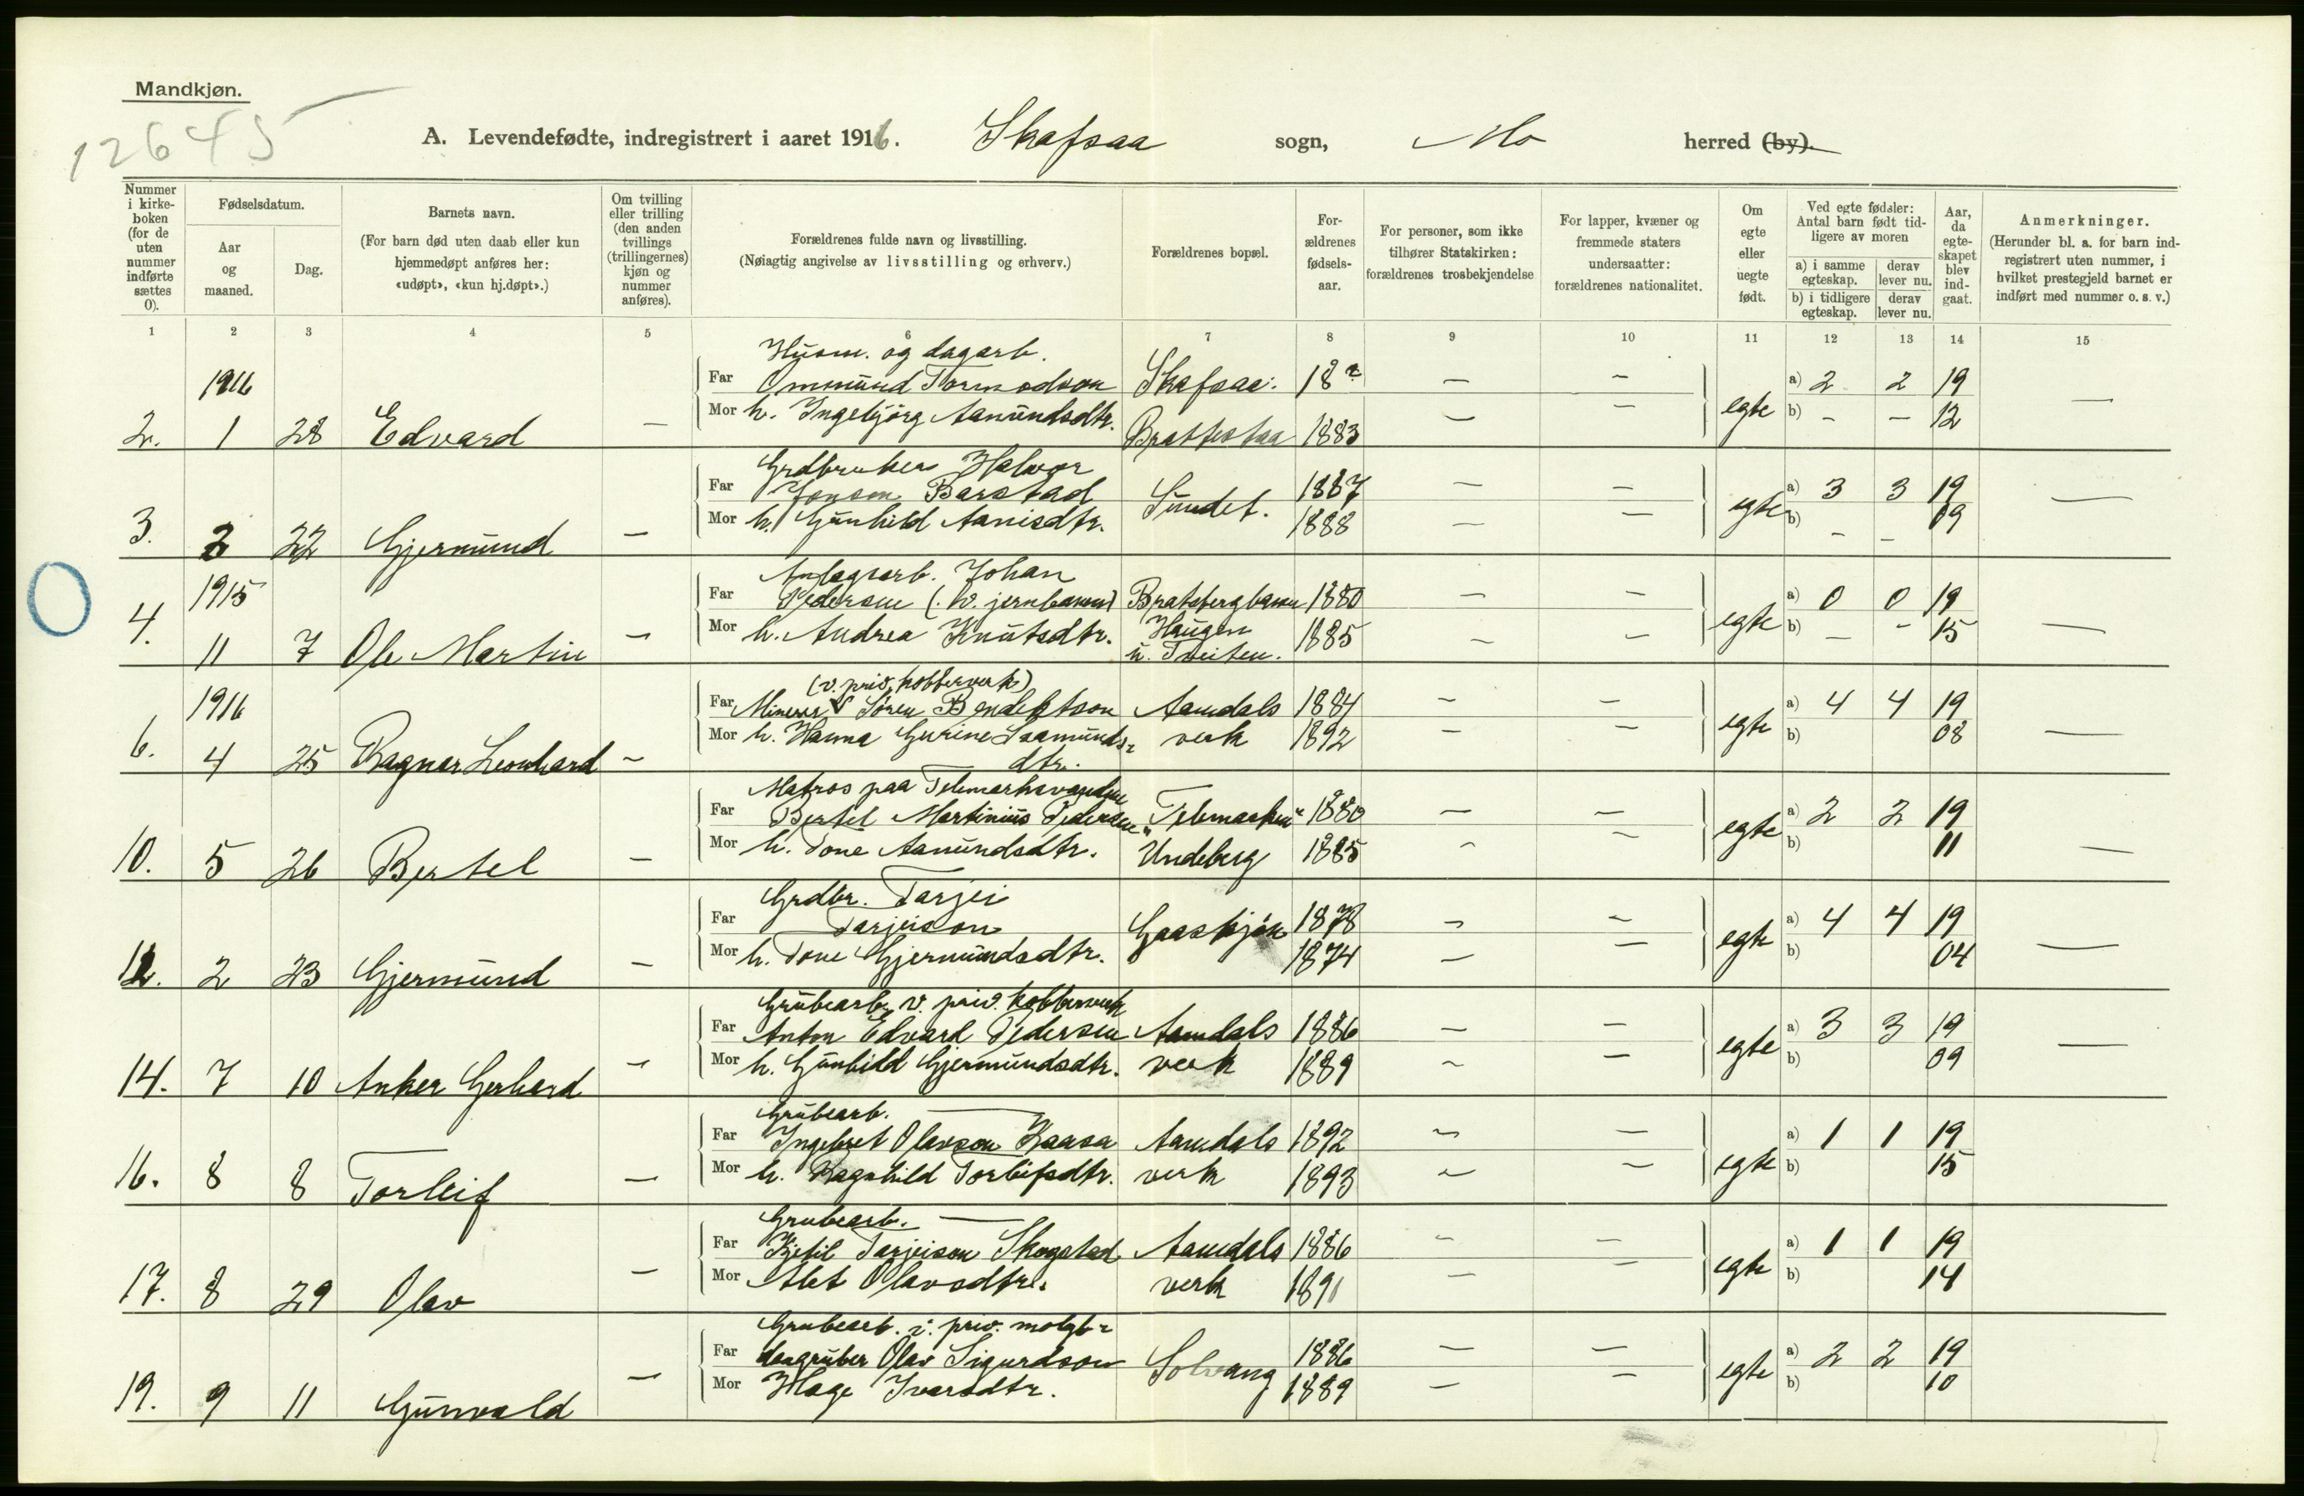 Mandkjøn.
12645
A. Levendefødte, indregistrert i aaret 1916. Skafsaa sogn, Mo herred (by).
Nummer i kirke-boken (for de uten nummer indførte sættes 0).
Fødselsdatum.
Aar og maaned.
Dag.
Barnets navn.
(For barn død uten daab eller kun hjemmedøpt anføres her: «udøpt», «kun hj.døpt».)
Om tvilling eller trilling (den anden tvillings (trillingernes) kjøn og nummer anføres).
Forældrenes fulde navn og livsstilling.
(Nøiagtig angivelse av livsstilling og erhverv.)
Forældrenes bopæl.
For-ældrenes fødsels-aar.
For personer, som ikke tilhører Statskirken: forældrenes trosbekjendelse
For lapper, kvæner og fremmede staters undersaatter: forældrenes nationalitet.
Om egte eller uegte født.
Ved egte fødsler: Antal barn født tid-ligere av moren
a) i samme egteskap. derav lever nu.
b) i tidligere egteskap. derav lever nu.
Aar, da egte-skapet blev ind-gaat.
Anmerkninger.
(Herunder bl. a. for barn ind-registrert uten nummer, i hvilket prestegjeld barnet er indført med nummer o. s. v.)
1 2 3 4 5 6 7 8 9 10 11 12 13 14 15
Husm. og dagarb.
1916 Far Ommund Tormodson Skafsaa: 18? — — a) 2 2 19
2. 1 28 Edvard — Mor h. Ingebjörg Aamundsdtr. Brattestaa 1883 — — egte b) — — 12 —
Grdbruker Halvor
Far Jonson Barstad Sundet. 1887 — — a) 3 3 19
3. 2 22 Gjermund — Mor h. Gunhild Aanisdtr. 1888 — — egte b) — — 09 —
Anlægsarb. Johan
1915 Far Pedersen (v. jernbanen) Bratsbergbanen 1880 — — a) 0 0 19
4. 11 7 Ole Martin — Mor h. Andrea Knutsdtr. Haugen u. Tveiten. 1885 — — egte b) — — 15 —
(v. priv. kobberverk)
1916 Far Minerer Søren Bendektson Aamdals 1884 — — a) 4 4 19
6. 4 25 Ragnar Leonhard — Mor h. Hanna Gurine Saamunds= verk 1892 — — egte b) 08 —
dtr.
Matros paa Telemarksvandene
Far Bertel Martinius Pedersen "Telemarken" 1880 — — a) 2 2 19
10. 5 26 Bertel — Mor h. Tone Aamundsdtr. Undeberg 1885 — — egte b) 11 —
Grdbr. Tarjei
Far Tarjeison Gaaskjøn 1878 — — a) 4 4 19
12. 2 23 Gjermund — Mor h. Tone Gjermundsdtr. 1874 — — egte b) 04 —
Grubearb. v. priv. kobberverk
Far Anton Edvard Pedersen Aamdals 1886 — — a) 3 3 19
14. 7 10 Anker Gerhard — Mor h. Gunhild Gjermundsdtr. verk 1889 — — egte b) 09 —
Grubearb. —
Far Ingebret Olavson Haasa Aamdals 1892 — — a) 1 1 19
16. 8 8 Torleif — Mor h. Ragnhild Torleifsdtr. verk 1893 — — egte b) 15
Grubearb. —
Far Kjetil Tarjeison Skogstad Aamdals 1886 — — a) 1 1 19
17. 8 29 Olav — Mor Alet Olavsdtr. verk 1891 — — egte b) 14
Grubearb. i. priv. molyb=
Far dengruber Olav Sigurdson Solvang 1886 — — a) 2 2 19
19. 9 11 Gunvald — Mor Hage Ivarsdtr. 1889 — — egte b) 10